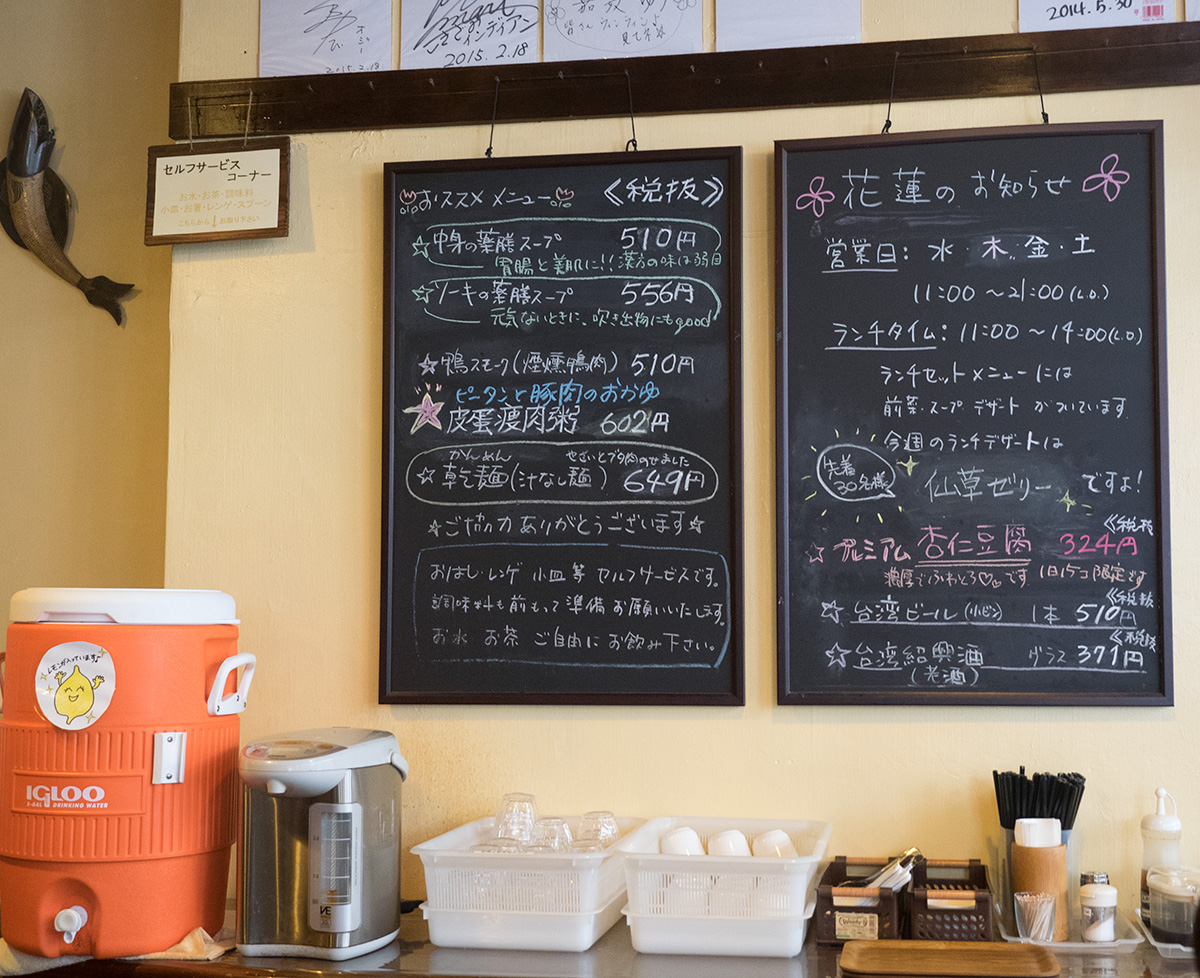 2015.2.18
インディアン
2015.2.18
2014.5.30
セルフサービス
コーナー
お水・お茶・調味料
小皿・お箸・レンゲ・スプーン
こちらから↓お取り下さい
おススメメニュー 《税抜》
☆中身の薬膳スープ 510円
胃腸と美肌に!!漢方の味は弱目
☆ソーキの薬膳スープ 556円
元気ないときに、吹き出物にもgood
☆鴨スモーク(煙燻鴨肉) 510円
ピータンと豚肉のおかゆ
皮蛋痩肉粥 602円
かんめん せさいとブタ肉のせました
☆乾麺(汁なし麺) 649円
☆ご協力ありがとうございます☆
おはし・レンゲ 小皿 等 セルフサービスです。
調味料も前もって準備お願いいたします。
お水 お茶 ご自由にお飲み下さい。
花蓮のお知らせ
営業日: 水・木・金・土
11:00〜21:00(L.O.)
ランチタイム: 11:00〜14:00(L.O)
ランチセットメニューには
前菜・スープ デザート がついています.
今週のランチデザートは
先着
30名様
仙草ゼリー ですよ!
《税抜
☆プレミアム 杏仁豆腐 324円
濃厚でふわとろ♡♡です 1日15コ限定です
《税抜
☆台湾ビール(小ビン) 1本 510円
《税抜
☆台湾紹興酒 グラス 371円
(老酒)
レモンが入っています♪
IGLOO
5-GAL DRINKING WATER